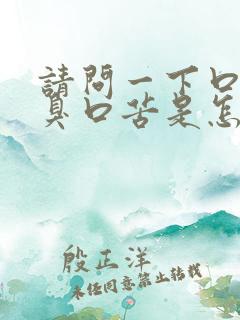 請問一下口
臭口苦是怎
殷正洋
未任同意禁止轉載